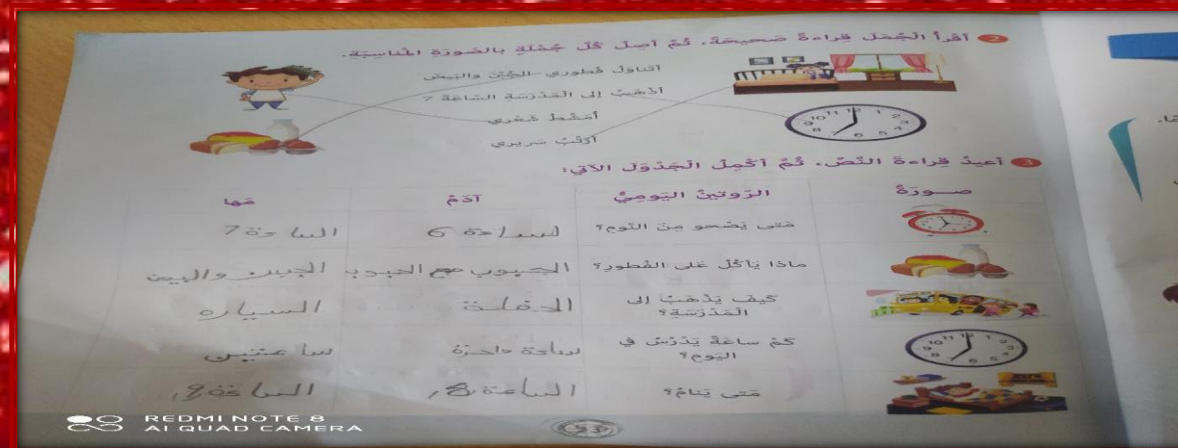 2 اقرأ الجُمَل قِراءةً صَحيحَةً، ثُمَّ أصِلُ كُلَّ جُمْلَةٍ بِالصّورَةِ المُناسِبَةِ.
أتناوَلُ فُطوري الجُبْنَ والبَيْضَ
أذْهَبُ إلى الْمَدْرَسَةِ السّاعَةَ 7
أمَشِّطُ شَعْري
أرَتِّبُ سَريري
3 أعيدُ قِراءةَ النّصِّ، ثُمَّ أُكْمِلُ الْجَدْوَلَ الآتي:
صورَةٌ الرّوتينُ اليَوميُّ آدَمُ مَها
مَتى يَصْحو مِنَ النَّومِ؟ الساعة 6 الساعة 7
ماذا يَأْكُلُ عَلى الفُطورِ؟ الحبوب مع الحبوب الجبن والبيض
كَيْفَ يَذْهَبُ إلى الْمَدْرَسَةِ؟ الحفلة السياره
كَمْ ساعَةً يَدْرُسُ في اليَومِ؟ ساعة واحزة ساعتين
مَتى يَنامُ؟ الساعة 8 الساعة 8
REDMI NOTE 8
AI QUAD CAMERA